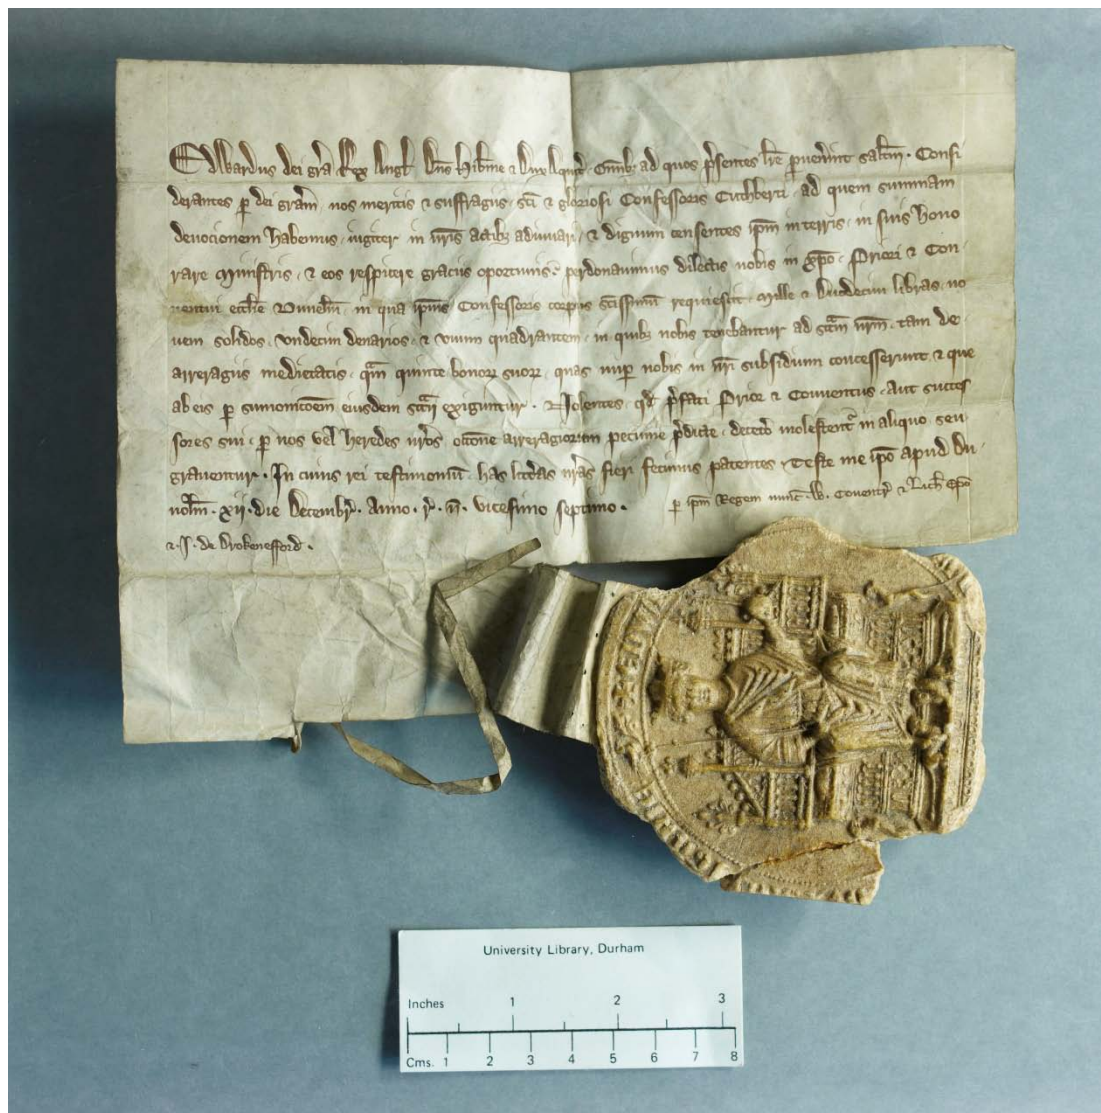 Edwardus dei gra Rex Angl Dns Hibnie & Dux Aquit . Omnibz ad quos psentes lre pvenint saltm . Consi
derantes p dei gram nos meritis & suffragiis sci & gloriosi Confessoris Cuthberti . ad quem summam
devocionem habemus . iugiter in nris actibz adiuvari . & dignum censentes ipm in terris . in suis hono
rare Ministris . & eos respicere graciis oportunis : perdonavimus dilectis nobis in xpo . Priori & Con
ventui ecclie Dunelm . in qua ipius Confessoris corpus scissimum requiescit . Mille & Duodecim libras . no
vem solidos . undecim denarios . & unum quadrantem . in quibz nobis tenebantur ad sccm nrm . tam de
arreragiis medietatis . qam quinte bonorz suorz . quas nup nobis in nri subsidium concesserunt & que
ab eis p sumonicoem eiusdem sccri exiguntur . Nolentes . qd pfati Prior & Conventus . aut succes
sores sui . p nos vel heredes nros occone arreragiorum pecunie pdicte . deceto molestentr in aliquo . seu
graventur . In cuius rei testimonium has litteras nras fieri fecimus patentes . Teste me ipo apud Du
nolm . xij . die Decembr . Anno . r . n . vicesimo septimo . p ipm Regem nunc . W . Coventr & Lich Epo
& . J . de Drokenefford .
University Library, Durham
Inches 1 2 3
Cms. 1 2 3 4 5 6 7 8